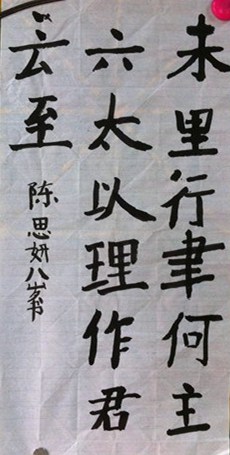 未里行聿何主
六太以理作君
云至
陈思妍八岁